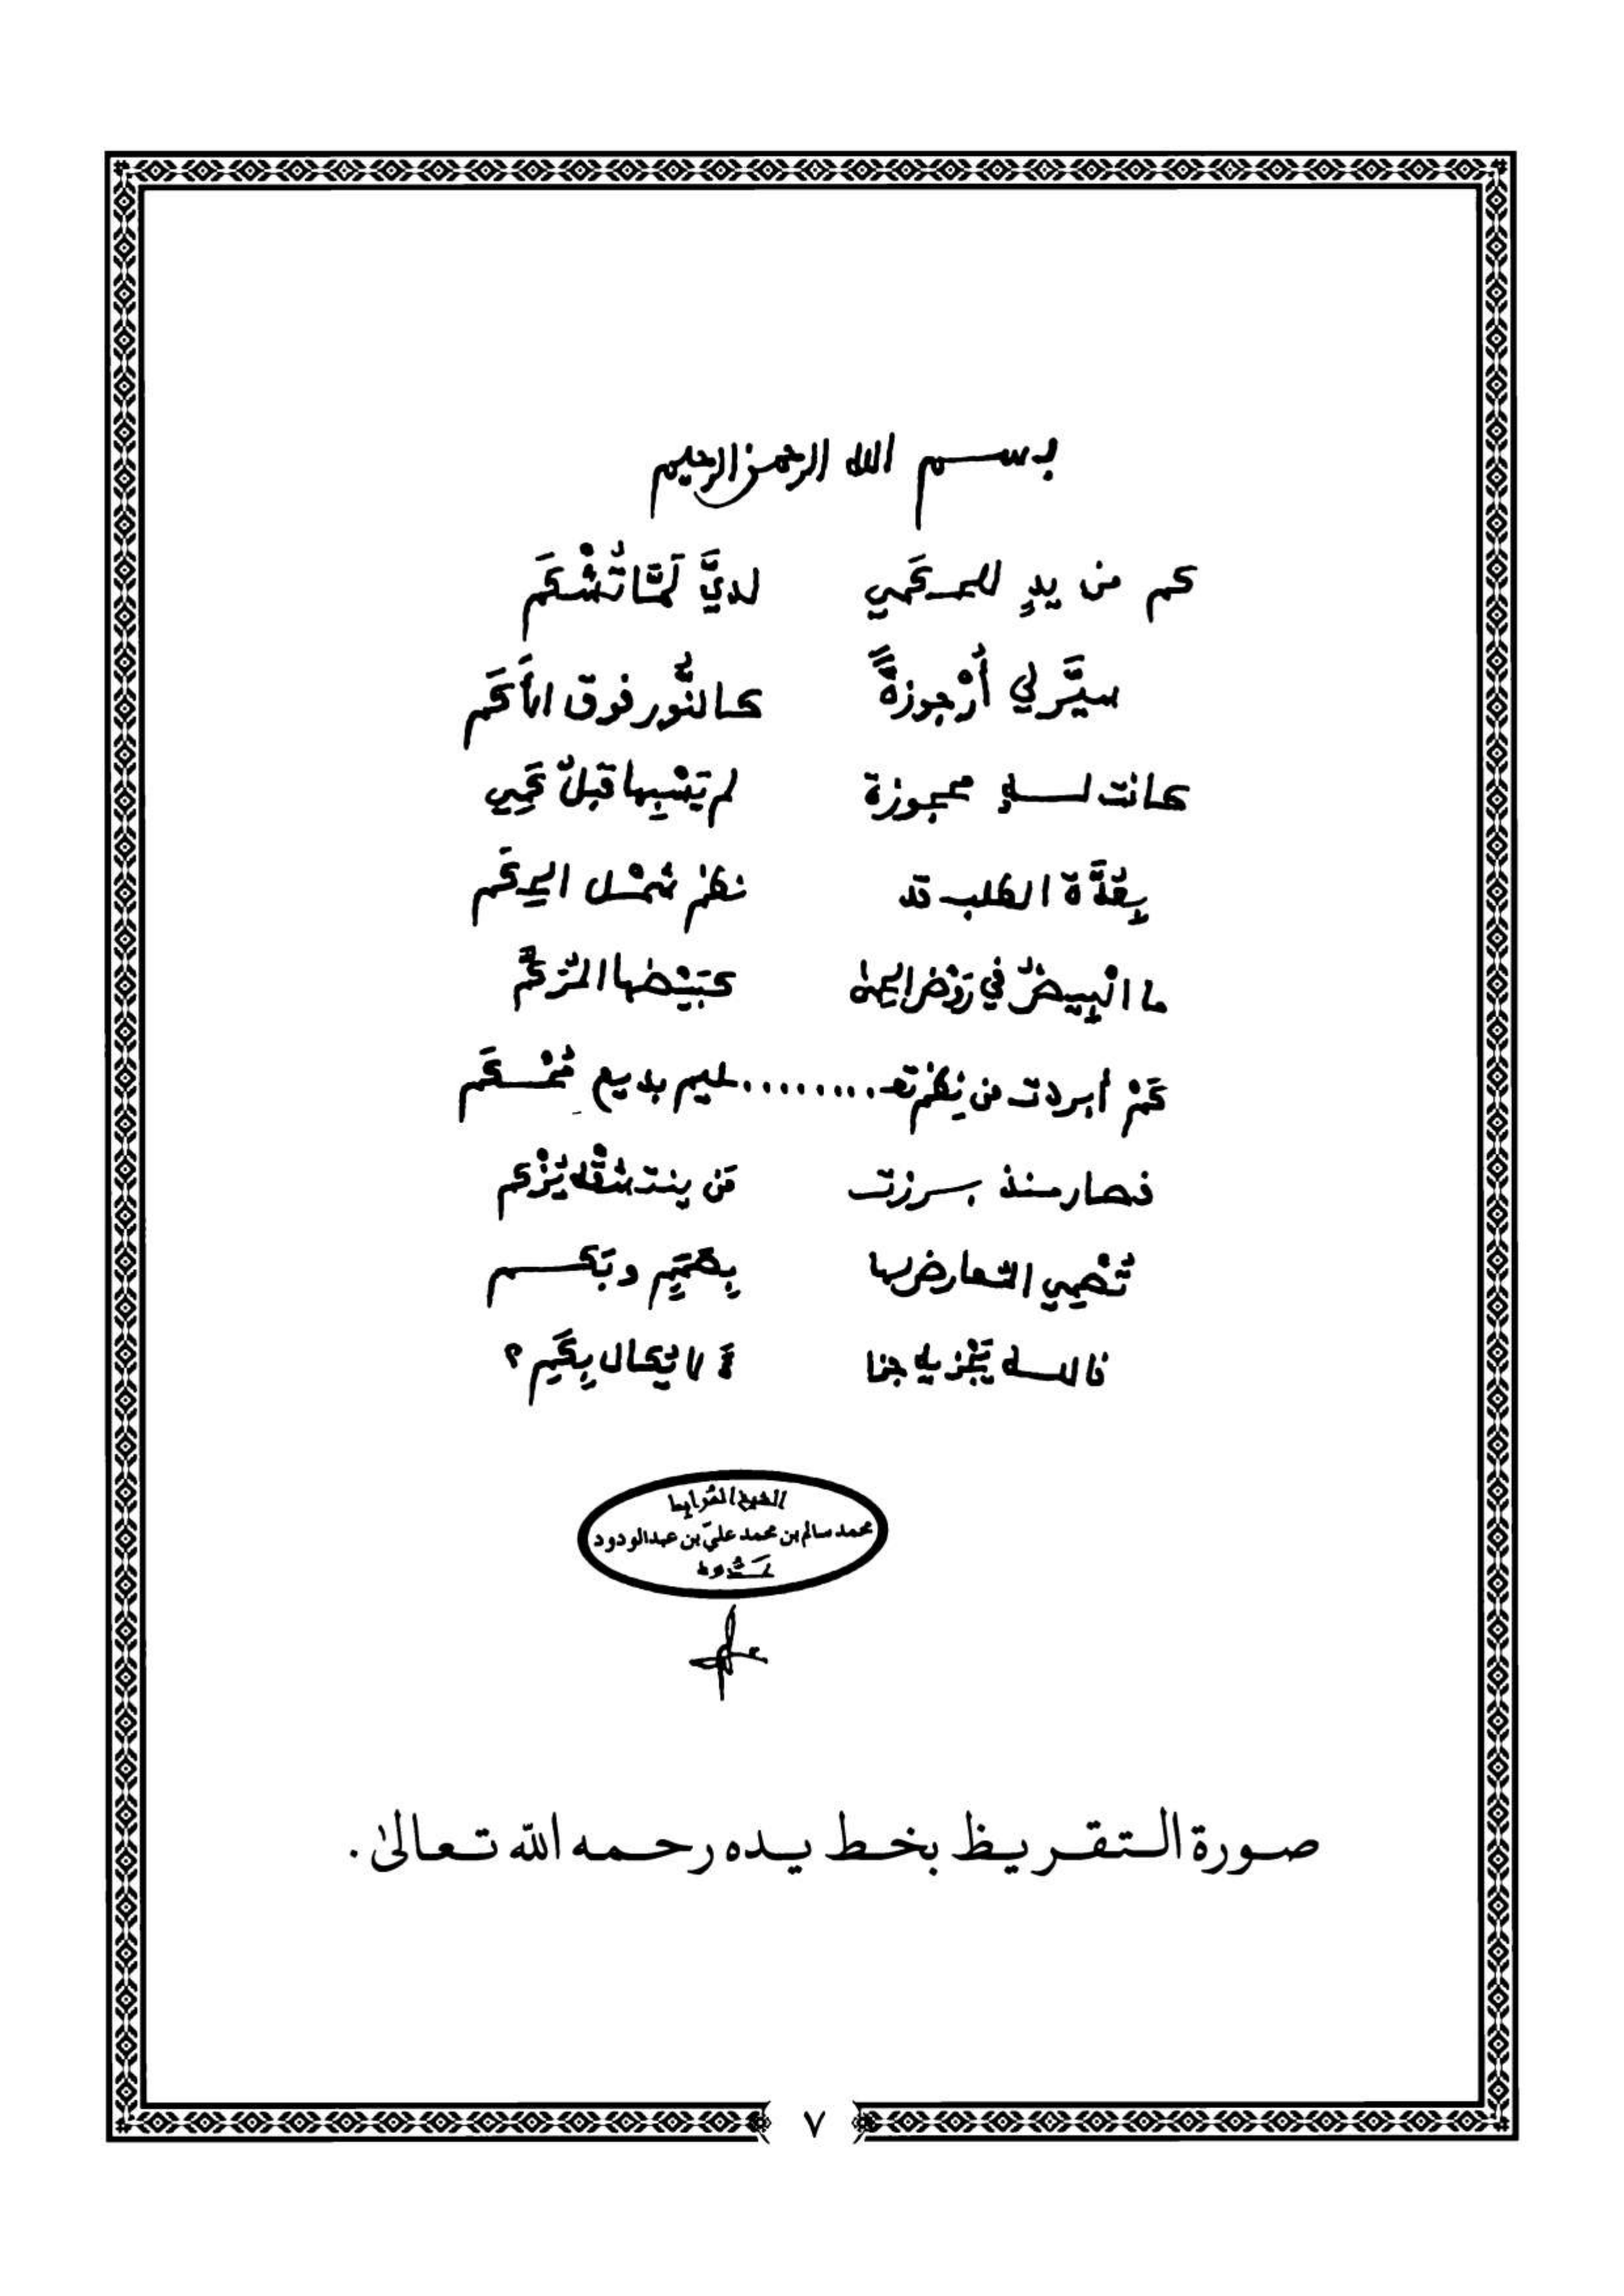 بسم الله الرحمن الرحيم
كم من يدٍ للحكمي لديَّ لَمَّا تُشْكَم
سيَّر لي أُرْجوزةً كالنُّور فوق الأَكَم
كانت له محجوزة لم يَسْبِها قبلُ كَمِي
بِقُدَّة الطلب قد نظمْ شمْل
ما الْبِيضُ في رَوْض كبَيْضها
كَمْ أبردت من نظْم تعـ........ـليم بديع مُحْكَم
فصار منذ برزت مَن ينتشقْه يُزْكم
تُصْمِي المعارض لها بِصَمَمٍ وبَكم
فالله يَجْزيه جزا ءً لا يُكال بِكَمِ؟
الشيخ المُرابِط
محمد سالم بن محمد عليّ بن عبدالودود
صورة التقريظ بخط يده رحمه الله تعالىٰ.
٧